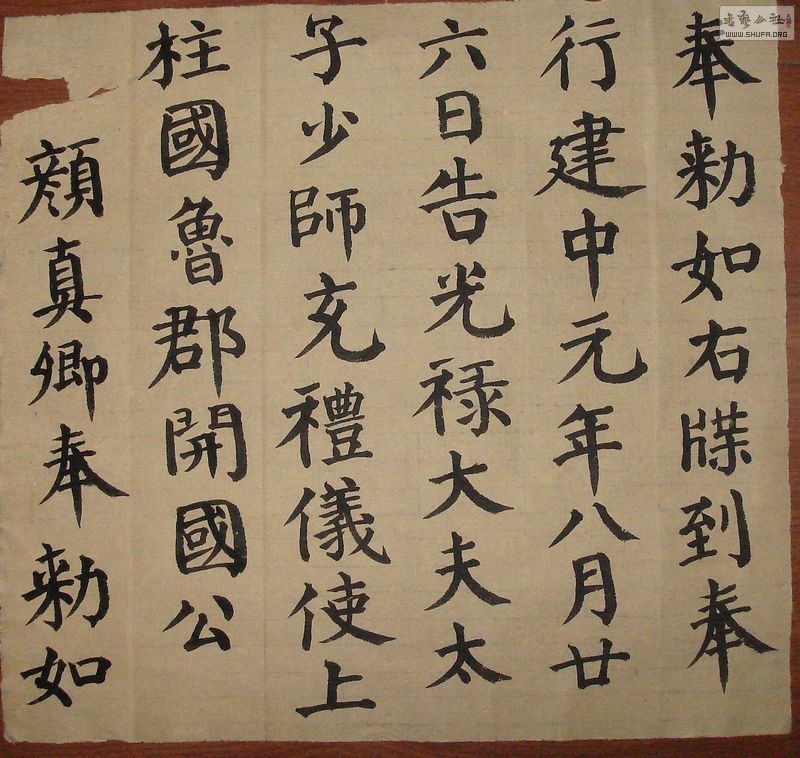 奉勑如右牒到奉
行建中元年八月廿
六日告光禄大夫太
子少師充禮儀使上
柱國魯郡開國公
顔真卿奉勑如
WWW.SHUFA.ORG